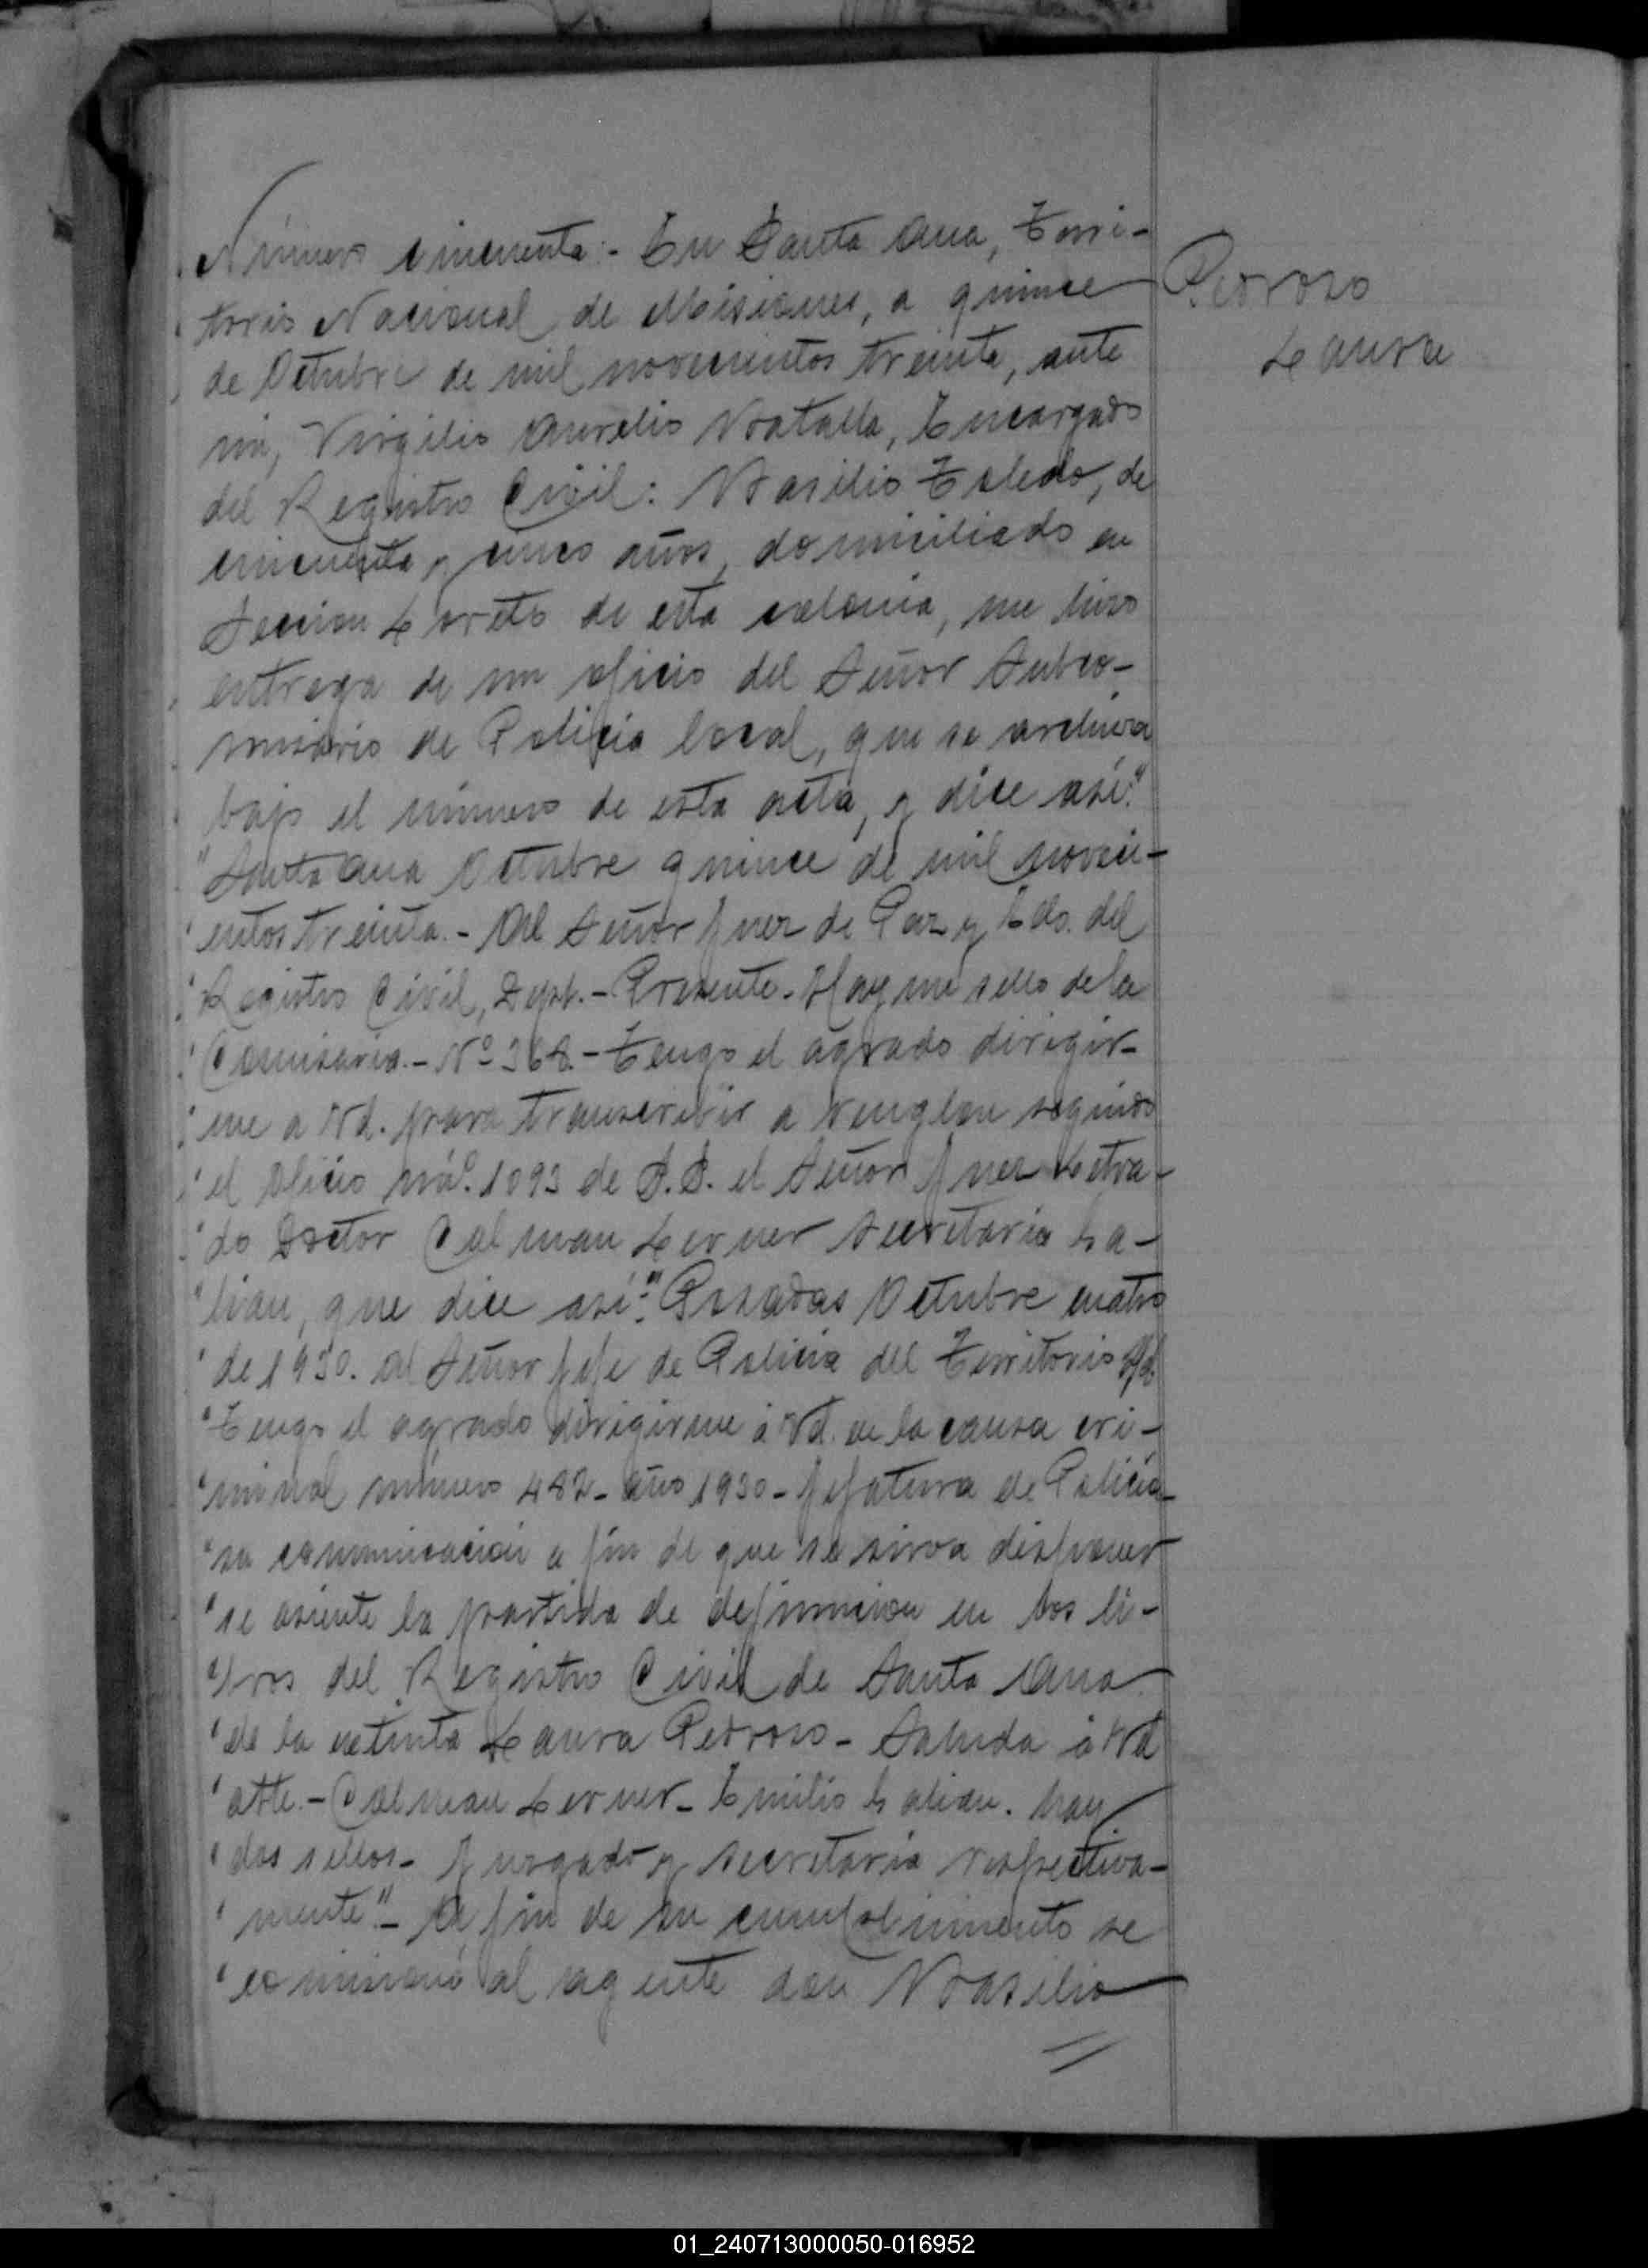 Número cincuenta:- En Santa Ana, Terri-
torio Nacional de Misiones, a quince
de Octubre de mil novecientos treinta, ante
mi, Virgilio Aurelio Batalla, Encargado
del Registro Civil: Basilio Toledo, de
cincuenta y cinco años, domiciliado en
Seccion Loreto de esta colonia, me hizo
entrega de un oficio del Señor Subco-
misario de Policia local, que se archiva
bajo el número de esta acta, y dice asi:"
"Santa Ana Octubre quince de mil noveci-
"entos treinta.- Al Señor Juez de Paz y Edo. del
"Registro Civil, Dept.- Presente. Hay un sello de la
"Comisaria.- Nº 368.- Tengo el agrado dirigir-
"me a Vd. para transcribir a renglon seguido
"el oficio nú. 1093 de S.S. el Señor Juez Letra-
"do Doctor Calman Lerner secretaria Ga-
"lian, que dice asi:" Posadas Octubre cuatro
"de 1930. Al Señor Jefe de Policia del Territorio S/d.
"Tengo el agrado dirigirme á Vd. en la causa cri-
"minal número 482- año 1930- Jefatura de Policia
"su comunicacion a fin de que se sirva disponer
"se asiente la partida de defuncion en los li-
"bros del Registro Civil de Santa Ana
"de la extinta Laura Pedrozo- Saluda á Vd
"atte.- Calman Lerner- Emilio Galian. hay
"dos sellos- Juzgado y secretaria respectiva-
"mente"- A fin de su cumplimiento se
"comisionó al agente don Basilio
Pedrozo
Laura
01_240713000050-016952